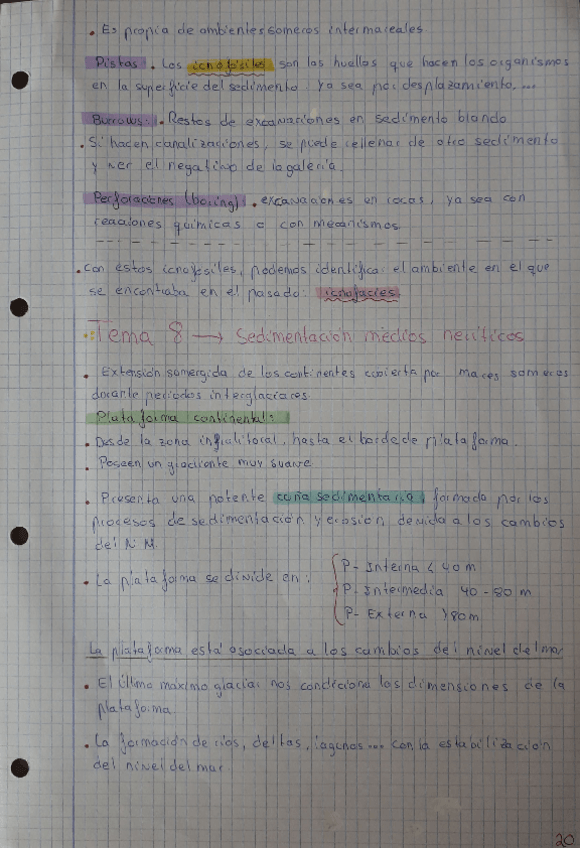 • Es propia de ambientes someros intermareales
Pistas • Los icnofósiles son las huellas que hacen los organismos
en la superficie del sedimento. Ya sea por desplazamiento,...
Burrows: • Restos de excavaciones en sedimento blando
• Si hacen canalizaciones, se puede rellenar de otro sedimento
y ver el negativo de la galería.
Perforaciones (boring): • excavaciones en rocas, ya sea con
reacciones químicas o con mecanismos
• Con estos icnofósiles, podemos identificar el ambiente en el que
se encontraba en el pasado: icnofacies
Tema 8 → Sedimentación medios neríticos
• Extensión somergida de los continentes cubierta por mares someros
durante periodos interglaciares
Plataforma continental:
• Desde la zona infralitoral, hasta el borde de plataforma.
• Poseen un gradiente muy suave
• Presenta una potente cuña sedimentaria, formada por los
procesos de sedimentación y erosión, devida a los cambios
del N.M.
• La plataforma se divide en:
P- Interna < 40 m
P- Intermedia 40 - 80 m
P- Externa > 80m
La plataforma está asociada a los cambios del nivel del mar
• El último máximo glaciar nos condiciona las dimensiones de la
plataforma.
• La formación de ríos, deltas, lagunas... con la estabilización
del nivel del mar.
20